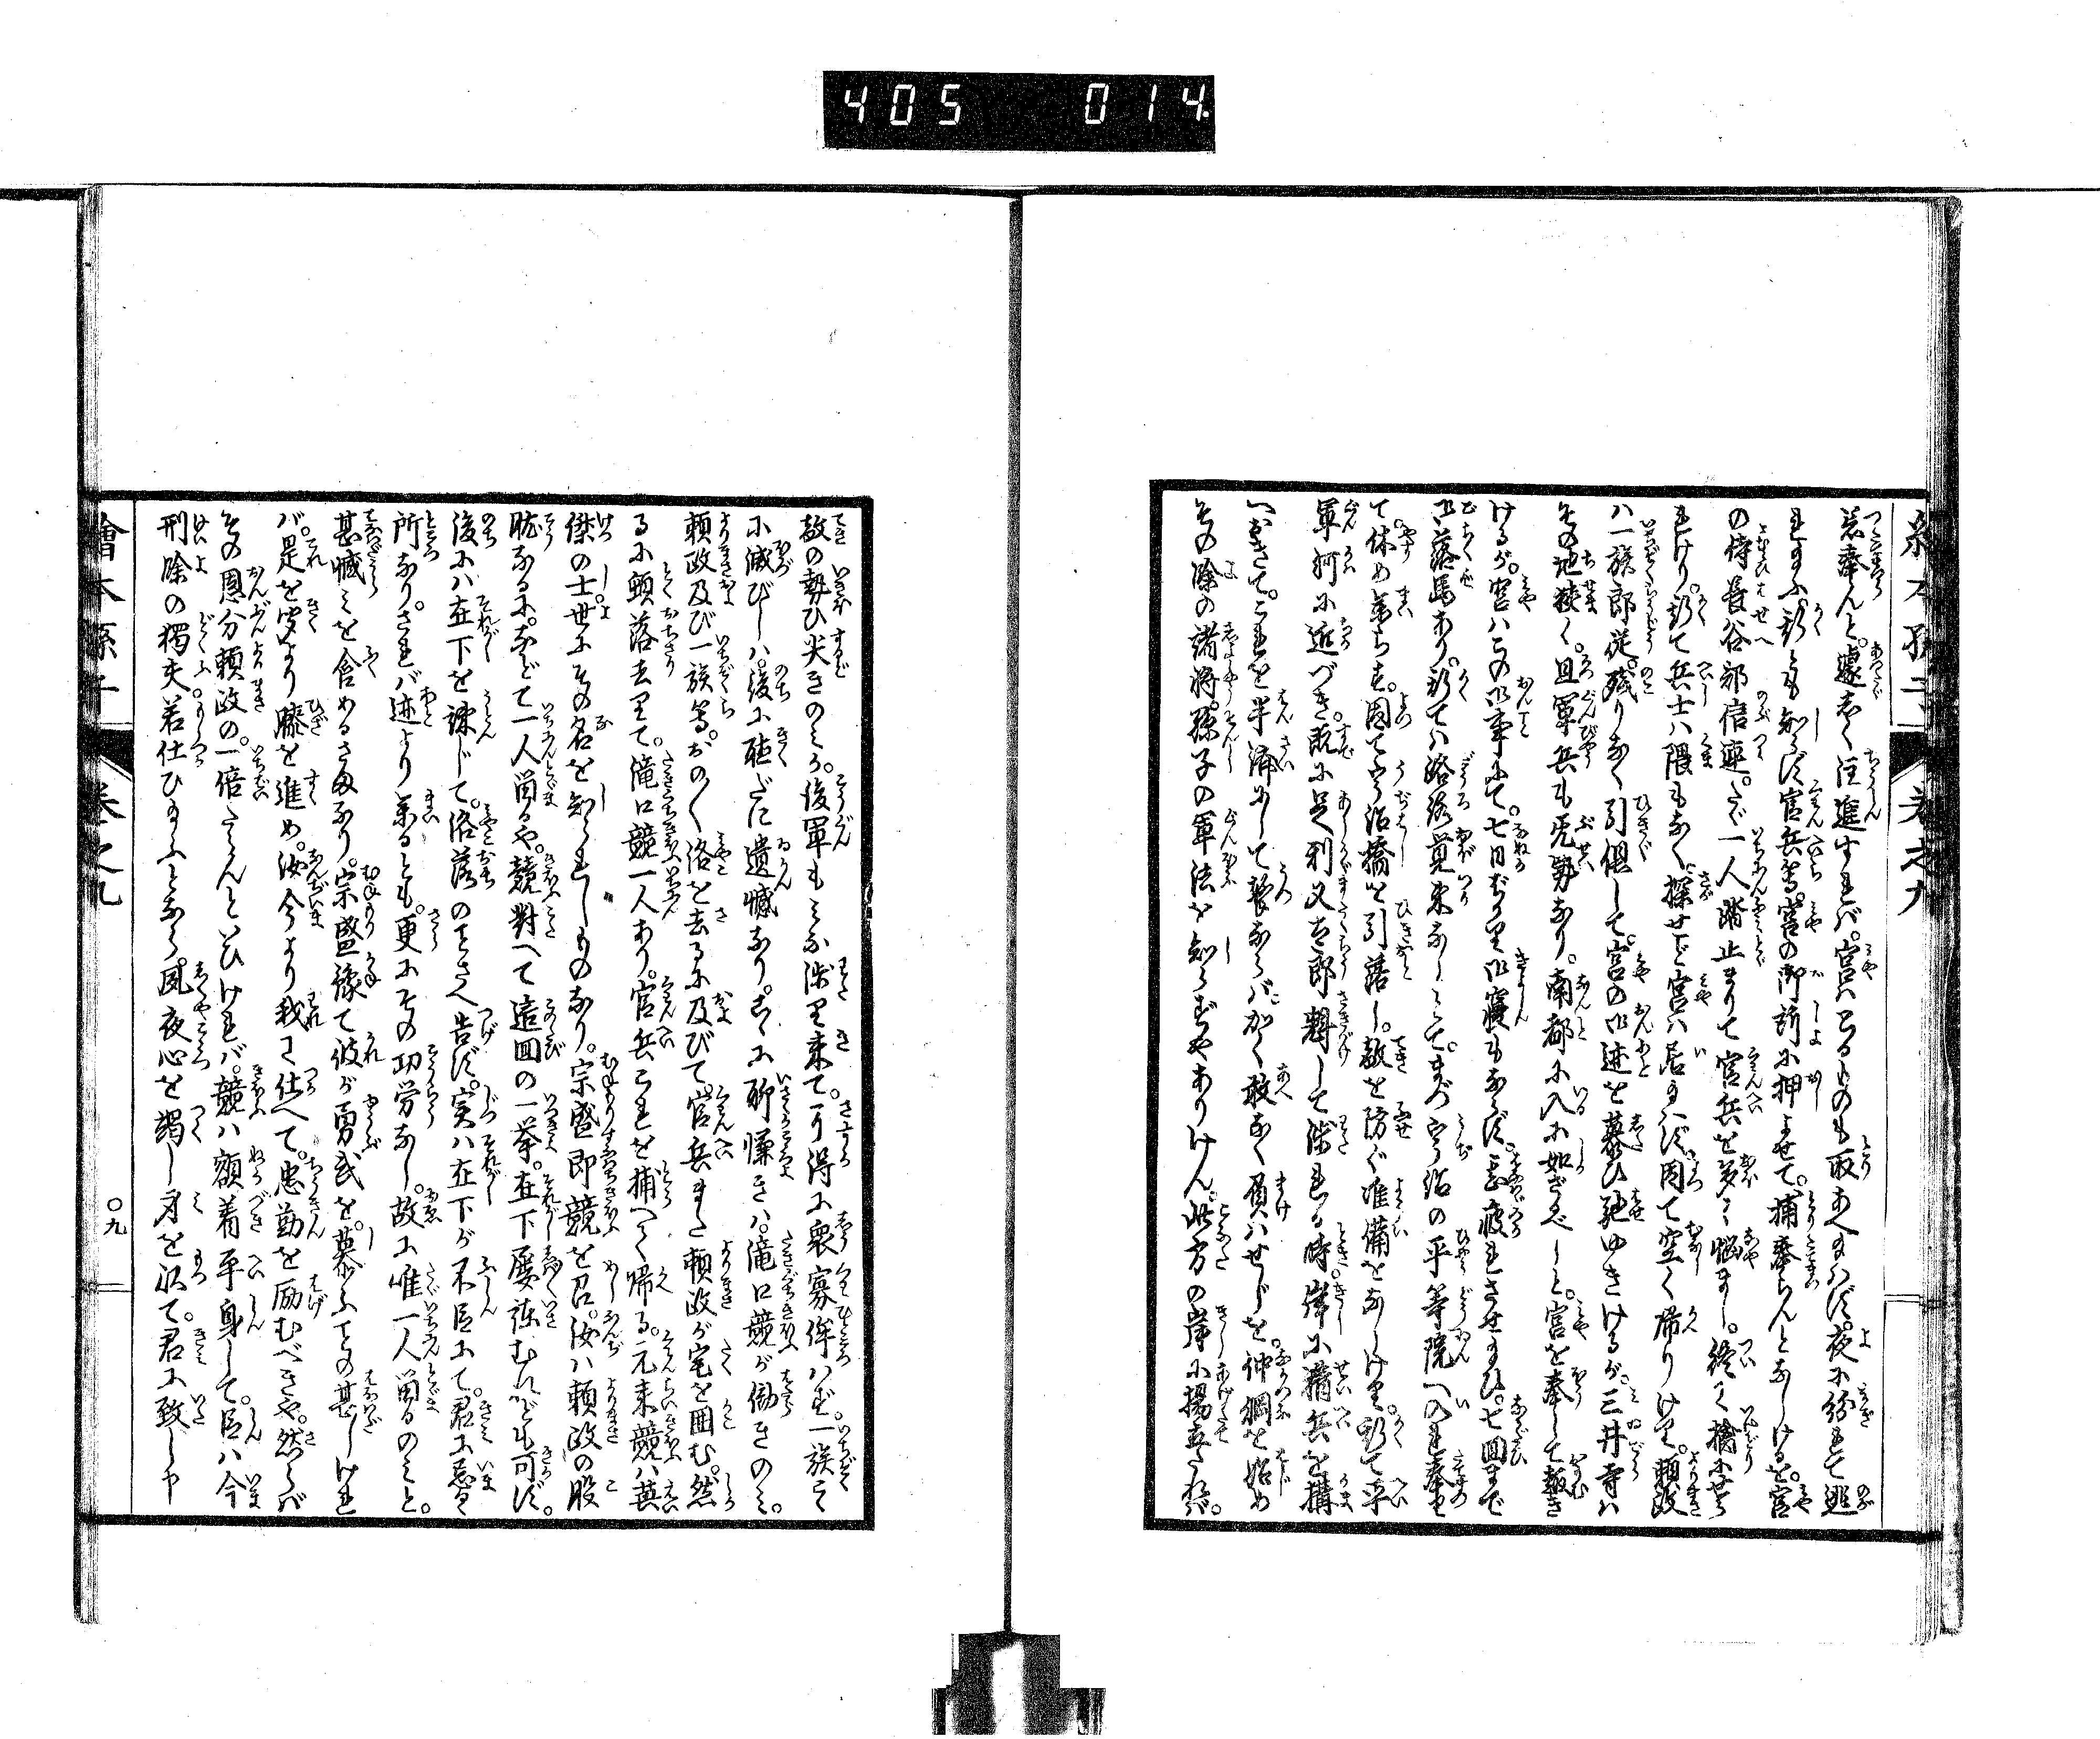 405 014.
忍奉んと。遽しく注進すれば。宮はとるものも取あへ玉はず。夜に紛れて逃
れ玉ふ。斯とも知らず官兵等。宮の御所に押よせて。捕奉らんとなしけるを。宮
の侍長谷部信連。たゞ一人踏止まりて官兵を多く悩まし。終に擒にせら
れけり。斯て兵士は隈もなく。探せど宮は居玉はず。因て空く帰りけり。頼政
は一族郎従。残りなく引倶して。宮の御迹を慕ひ馳ゆきけるが。三井寺は
その地狭く。且軍兵も无勢なり。南都に入に如ざべしと。宮を奉して趣き
けるが。宮はこの御事にて。七日ばかり御寝もならず。疲れさせ玉ひ。七回まで
御落馬あり。斯ては洛落覚束なしとて。まづ宇治の平等院へ入れ奉り
て。休め参らせ。因て宇治橋を引落し。敵を防ぐ准備をなしけり。斯て平
軍河に近づき。既に足利又太郎魁して渉れる時。岸に精兵を構
へおきて。これを半済にして襲ならばかく敢なく負はせじを。仲綱を始め
その餘の諸将。孫子の軍法を知らずやありけん。此方の岸に揚立たれば。
敵の勢ひ尖きのみか。後軍もみな渉り来て。可得に衆寡侔はず。一族こゝ
に滅びしは。後に聴だに遺憾なり。こゝに聊慊きは。滝口競が働きのみ。
頼政及び一族等。おの〱洛を去るに及びて。官兵また頼政が宅を囲む。然
るに頭落去りて。滝口競一人あり。官兵これを捕へて帰る。元来競は英
傑の士。世にその名を知られしものなり。宗盛即競を召。汝は頼政の股
肱なるに。などて一人留るや。競対へて這回の一挙。在下屡諫むれども可ず。
後には在下を疎じて。洛落のことさへ告ず。実は在下が不臣にて。君に忌るゝ
所なり。されば迹より参るとも。更にその功労なし。故に唯一人留るのみと。
甚憾みを含めるさまなり。宗盛豫て彼が勇武を。慕ふことの甚しけれ
ば。是を聞より膝を進め。汝今より我に仕へて。忠勤を励むべきや。然らば
その恩分頼政の。一倍たらんといひければ。競は額着平身して。臣は今
刑餘の獨夫。若仕ひ玉ふとなら。夙夜心を竭し身を以て。君に致し申
繪本孫子 巻之九 〇九